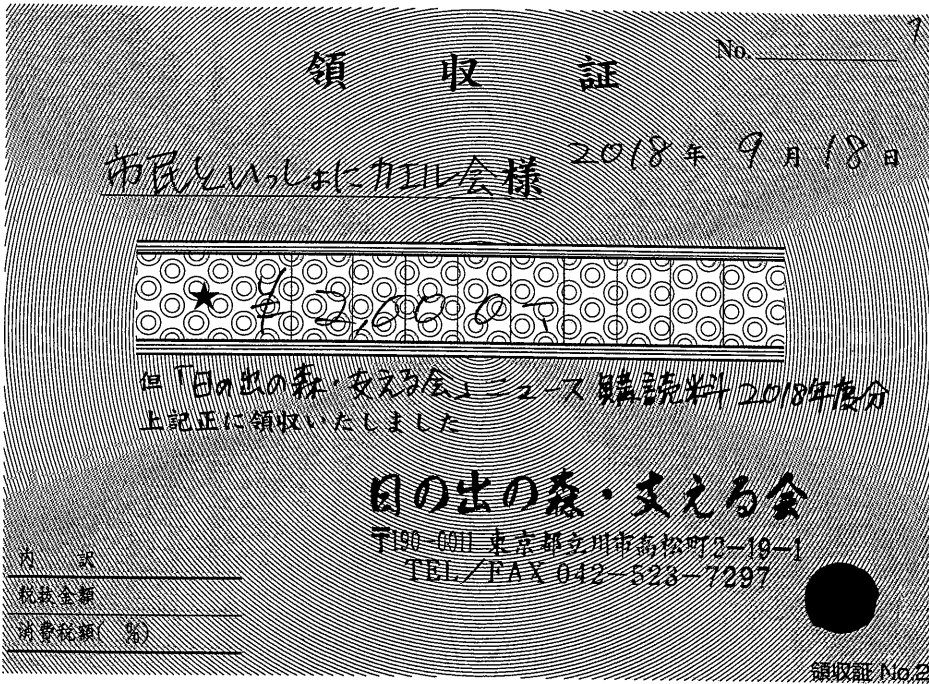 領収証
No. 7
市民といっしょにカエル会様
2018年9月18日
★ ¥2,000-
但「日の出の森・支える会」ニュース購読料 2018年度分
上記正に領収いたしました
日の出の森・支える会
〒190-0011 東京都立川市高松町2-19-1
TEL/FAX 042-523-7297
内訳
税抜金額
消費税額( %)
領収証 No.2